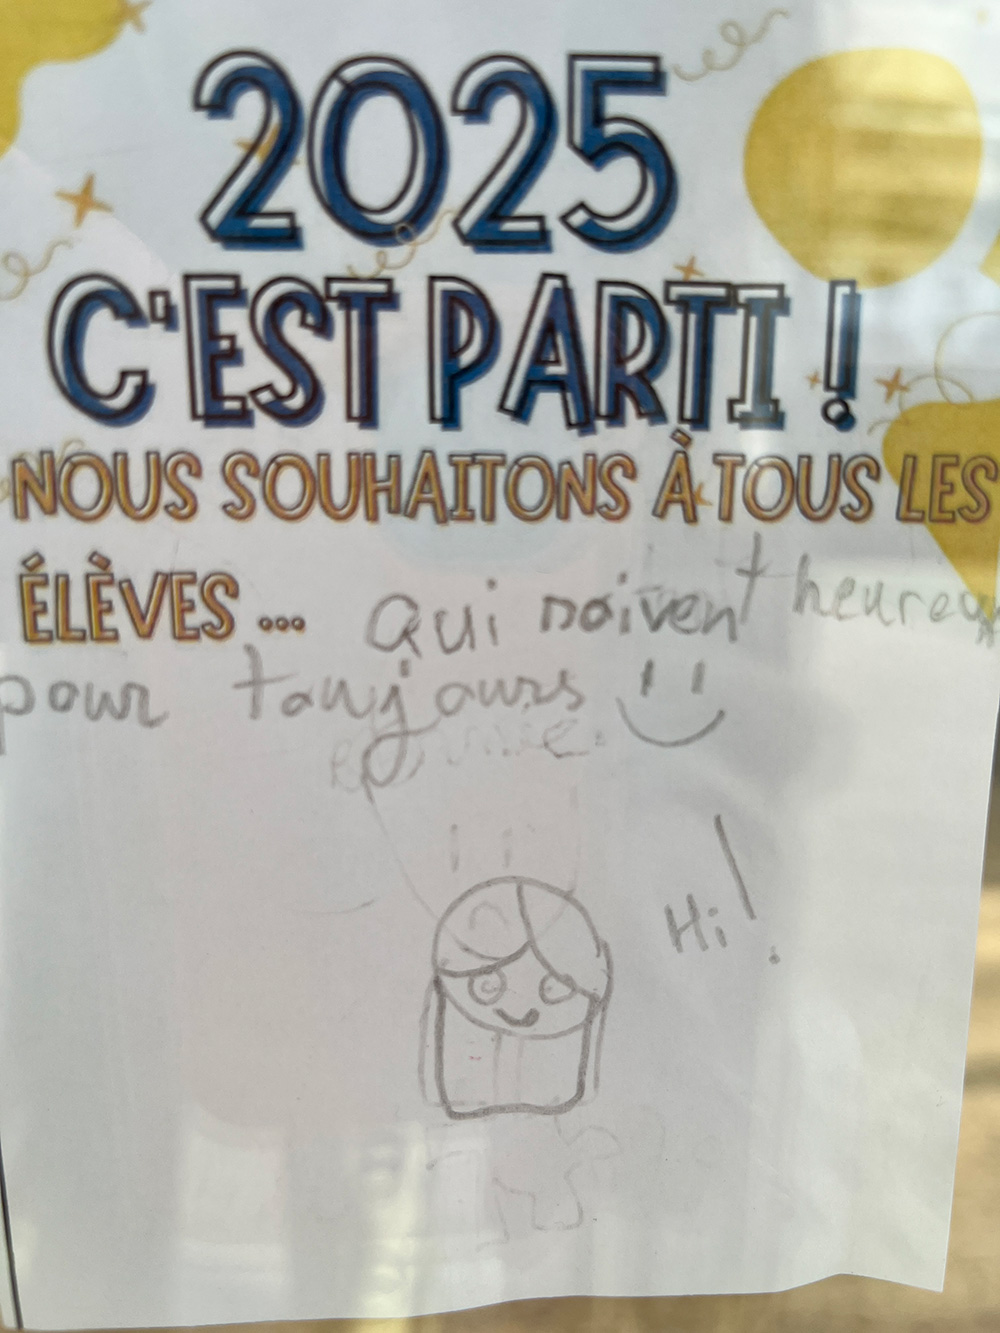 2025
C'EST PARTI !
NOUS SOUHAITONS À TOUS LES
ÉLÈVES ... qui soivent heureux
pour toujours
Hi!